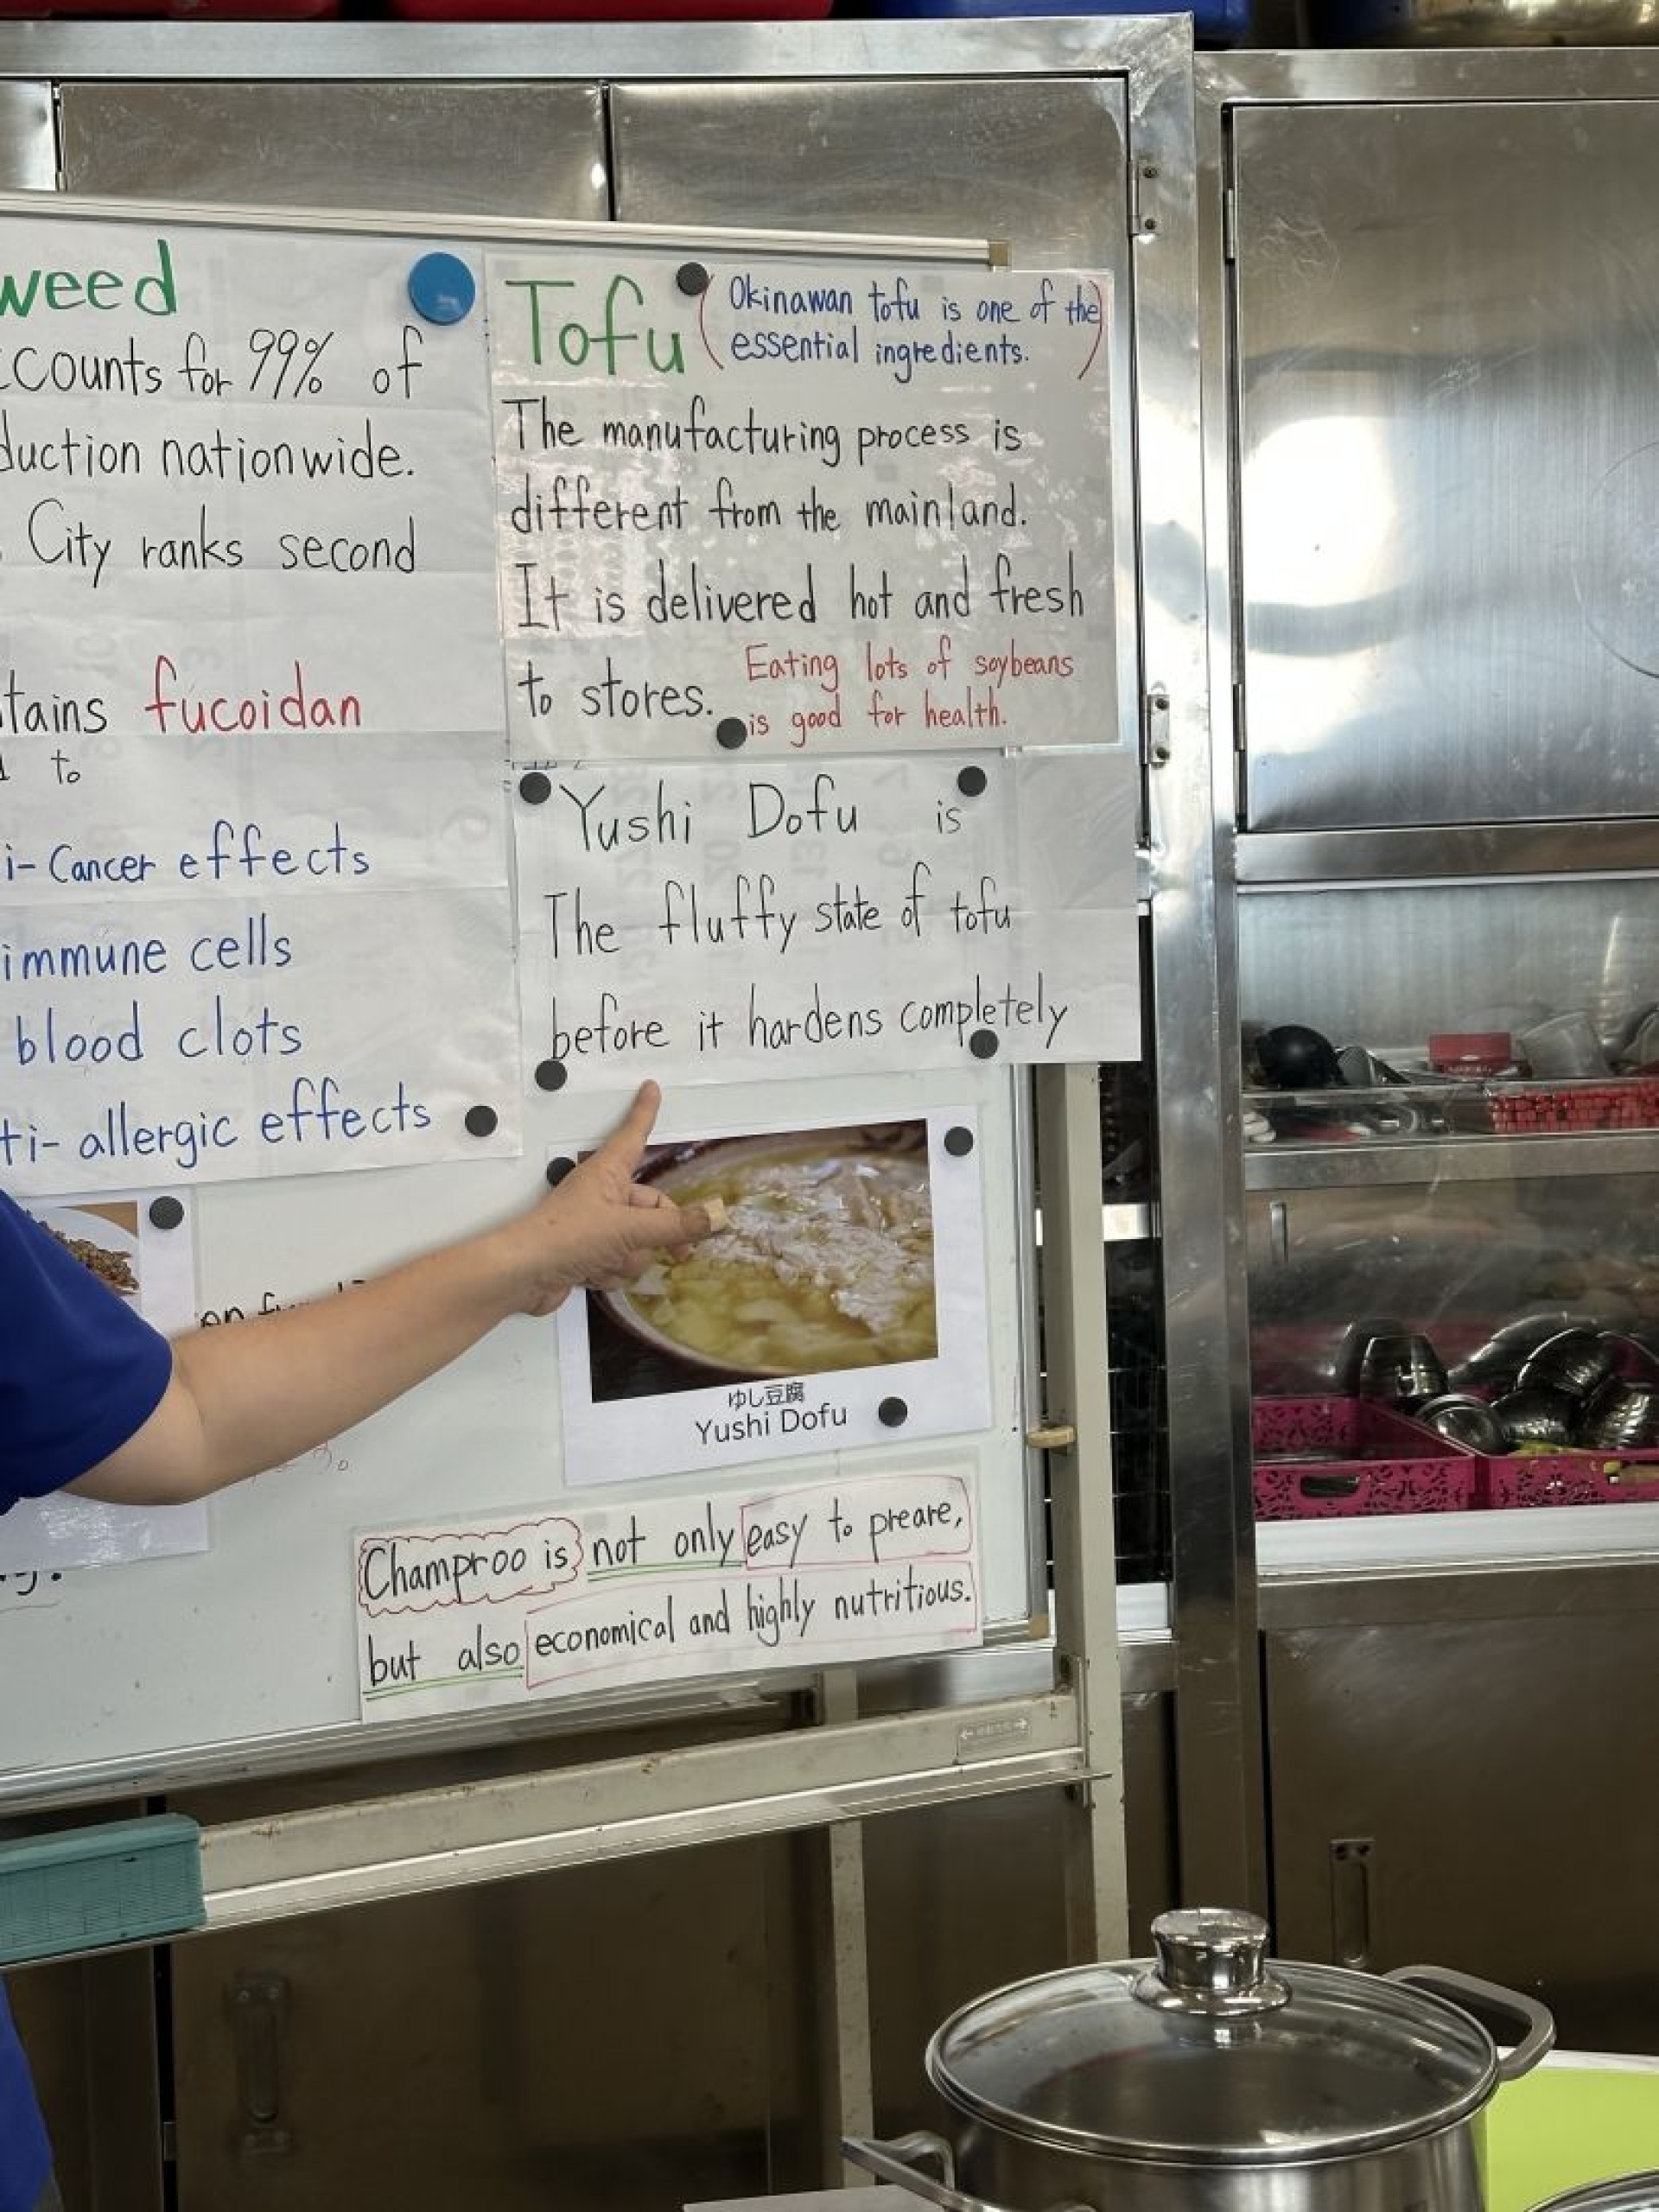 weed
ccounts for 99% of
duction nationwide.
City ranks second
tains fucoidan
to
i-Cancer effects
immune cells
blood clots
ti-allergic effects
Tofu
(Okinawan tofu is one of the
essential ingredients.)
The manufacturing process is
different from the mainland.
It is delivered hot and fresh
to stores.
Eating lots of soybeans
is good for health.
Yushi Dofu is
The fluffy state of tofu
before it hardens completely
on
ゆし豆腐
Yushi Dofu
Champroo is not only easy to preare,
but also economical and highly nutritious.